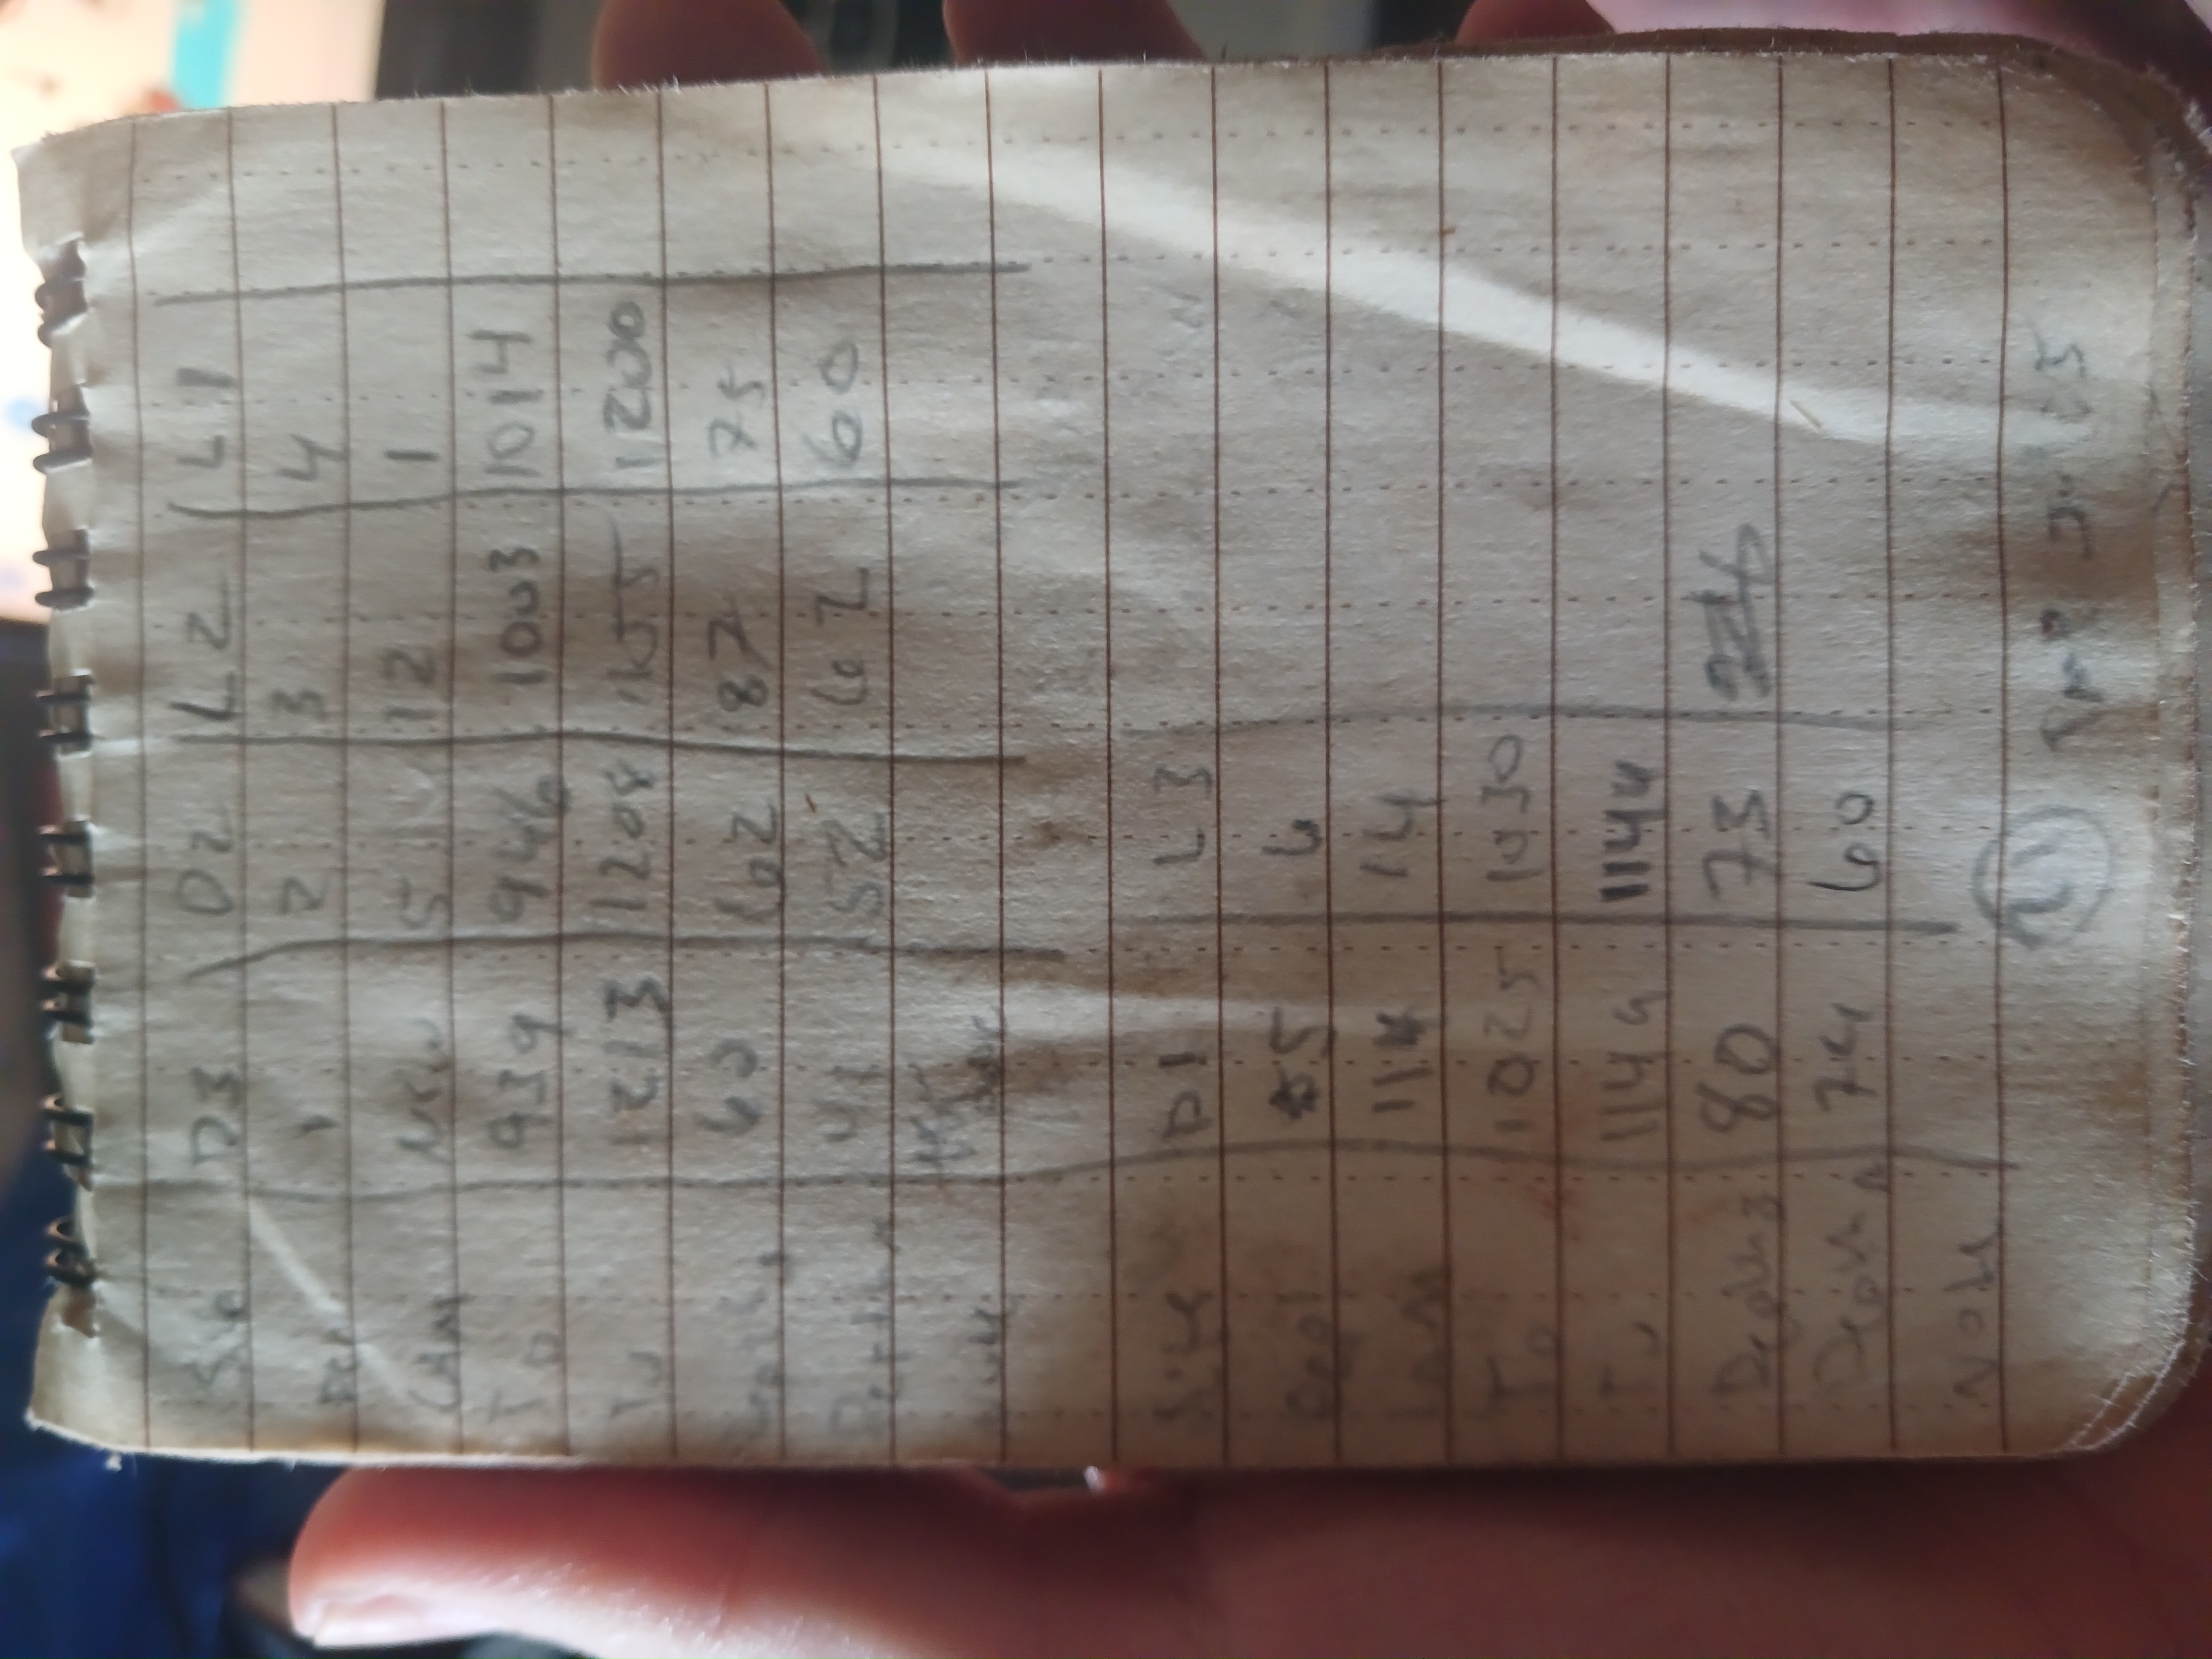 Site D3 D2 L2 L1
1 2 3 4
Cam New 5 12 1
T D 939 946 1003 1014
T U 1213 1208 1155 1200
60 62 87 75
52 62 60
Site D1 L3
Depl 5 6
Cam 11 14
T D 1025 1030
T U 1149 1144
Depth 80 73
Depth 74 60
Note